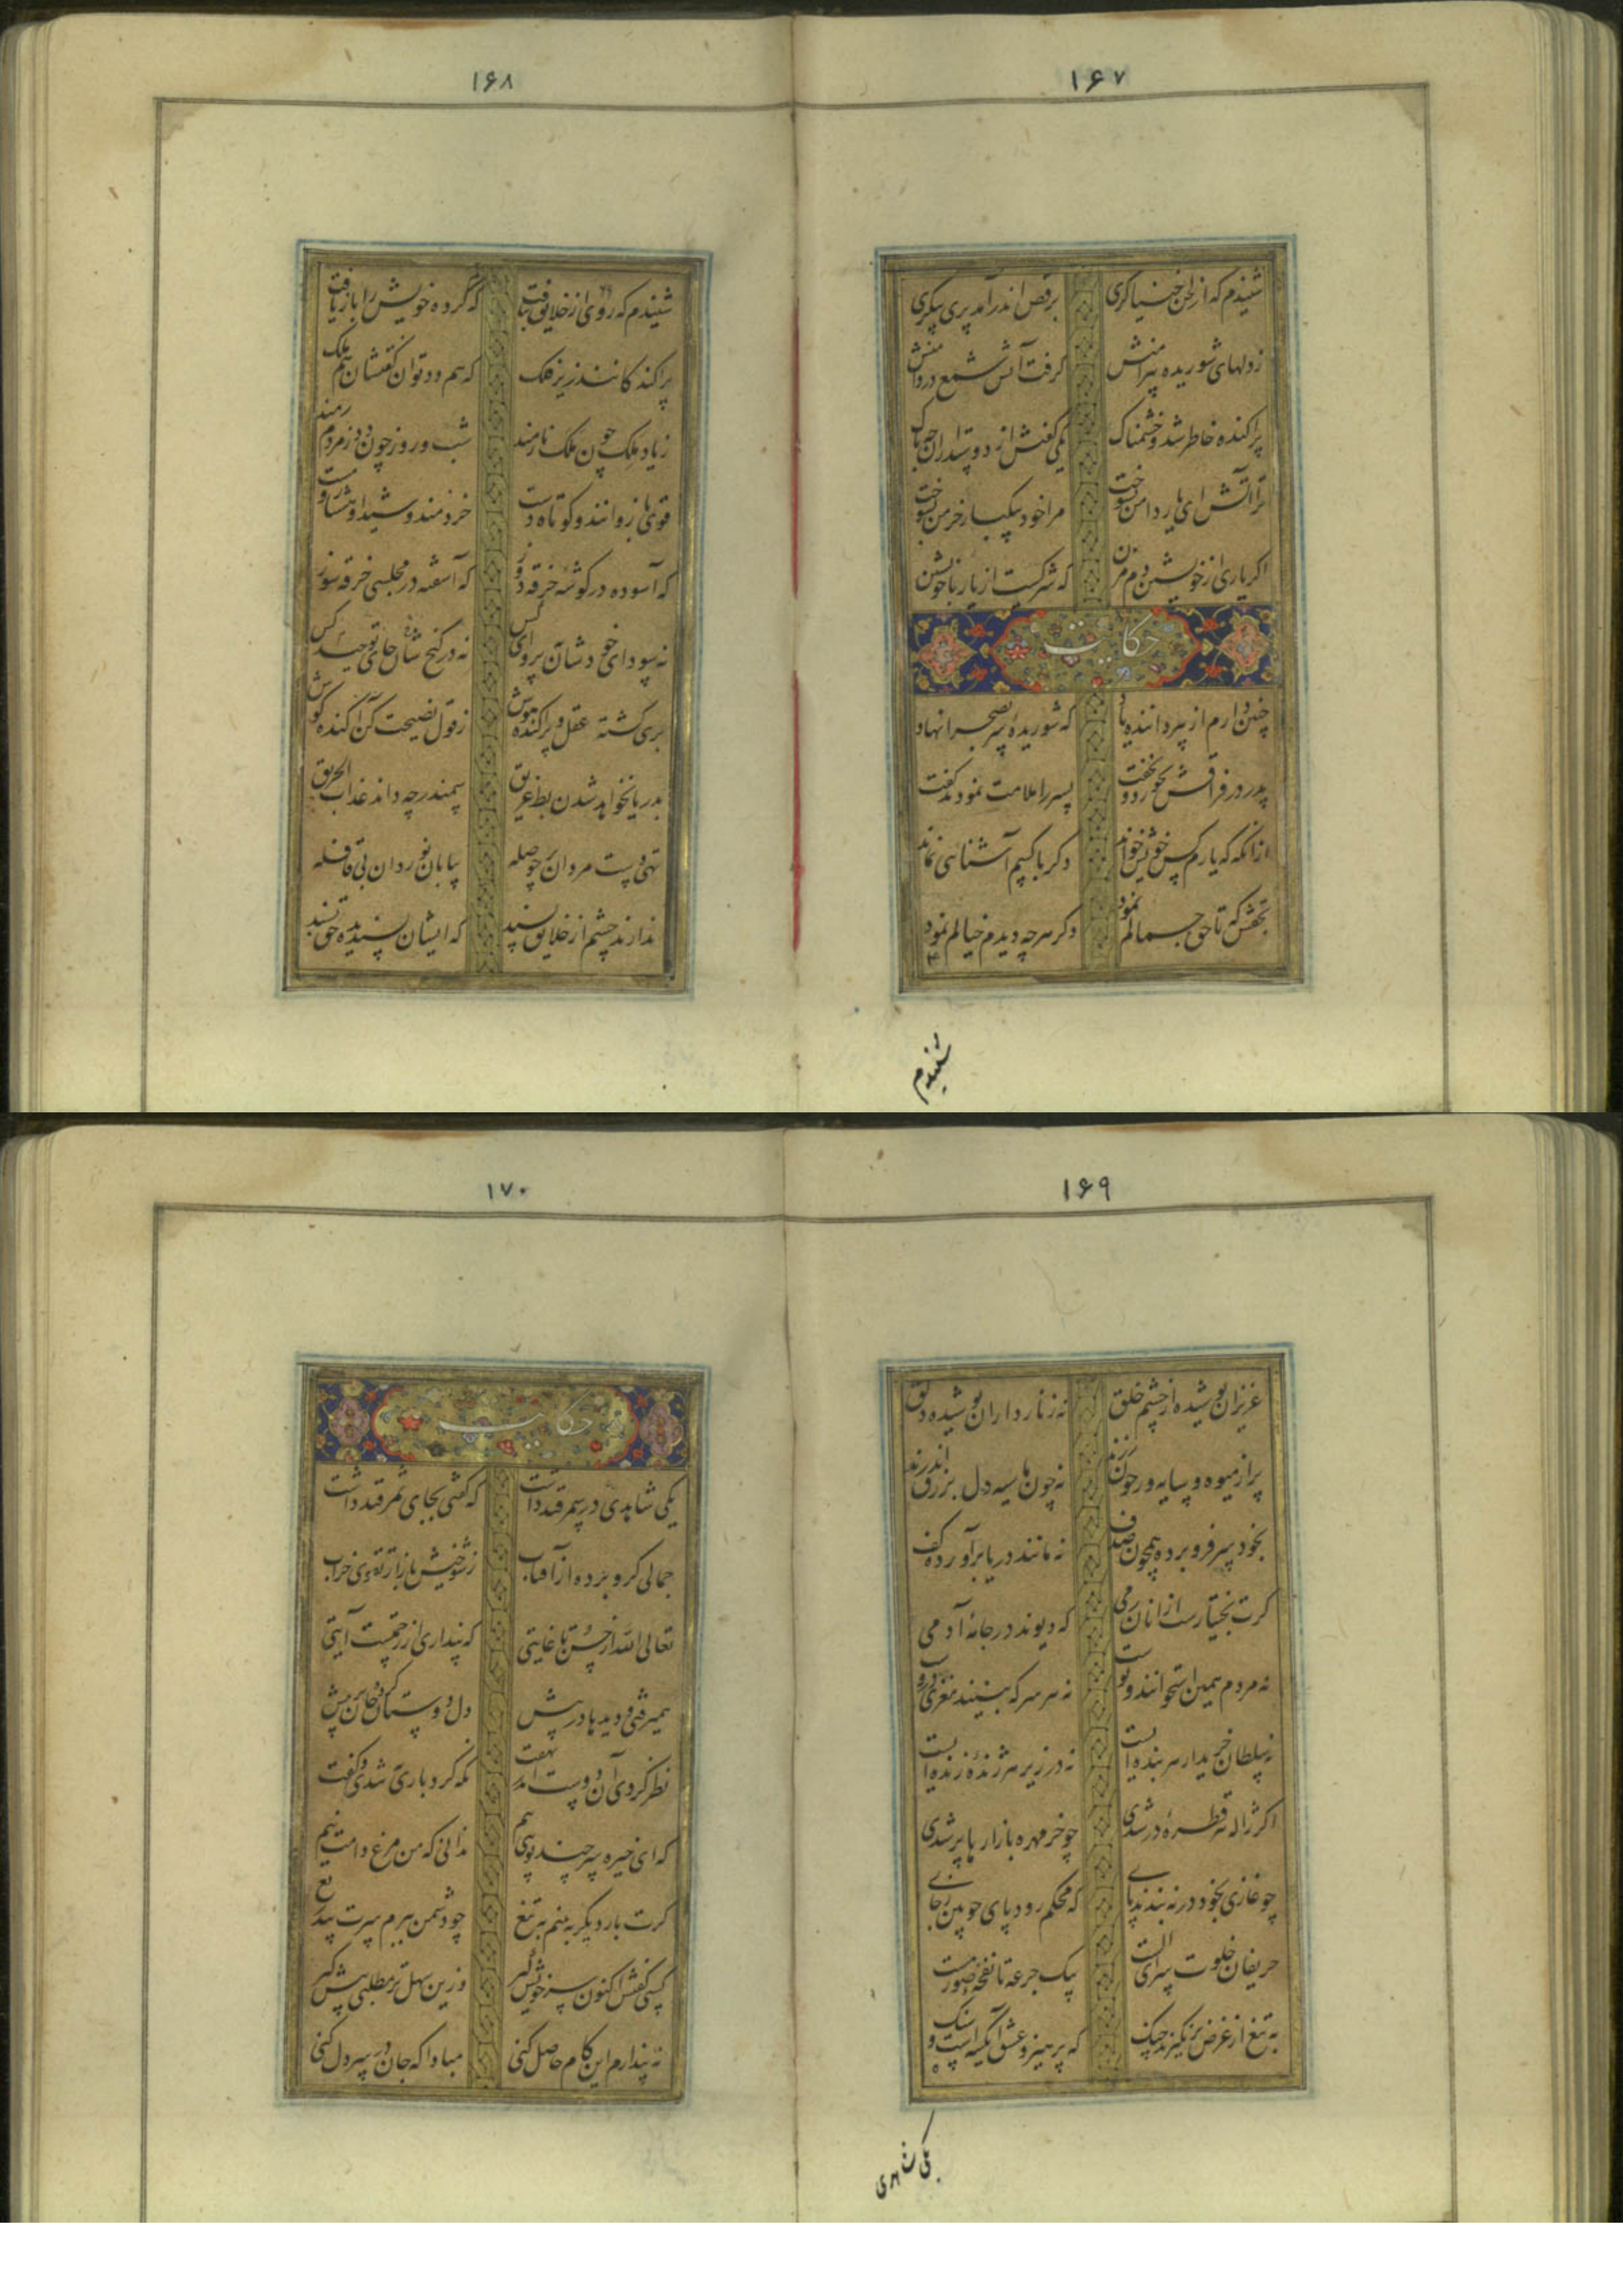 ۱۶۷
شنیدم که از لحن خنیاکری برقص اندر آمد پری پیکری
زدلهای شوریده پیرامنش کرفت آتش شمع در دامنش
پراکنده خاطر شد و خشمناک یکی کفتش از دوستداران چه باک
ترا آتش ای یار دامن بسوخت مرا خود بیکبار خرمن بسوخت
اکر یاری از خویشتن دم مزن که شرکست از یار با خویشتن
حکایت
چنین دارم از پیر داننده یاد که شوریده سر بصحرا نهاد
پدر در فراقش نخورد و نخفت پسر را ملامت نمودند کفت
از انکه که یارم کس خویش خواند دکر با کسیم آشنائی نماند
بحقش که تا حق جمالم نمود دکر هرچه دیدم خیالم نمود
شنیدم
۱۶۸
شنیدم که روی از خلایق بتافت که کم کرده خویش را باز یافت
پراکند کانند زیر فلک که هم دد توان کفتشان هم ملک
زیاد ملک چون ملک نارمند شب و روز چون دد زمردم رمند
قوی بازوانند و کوتاه دست خردمند و شیدا و هشیار و مست
که آسوده در کوشه خرقه دوز که آشفته در مجلسی خرقه سوز
نه سودای خودشان نه پروای کس نه در کنج توحیدشان جای کس
پریشیده عقل و پراکنده هوش زقول نصیحت کن آکنده کوش
بدریا نخواهد شدن بط غریق سمندر چه داند عذاب الحریق
تهی دست مردان پر حوصله بیابان نوردان بی قافله
ندارند چشم از خلایق پسند که ایشان پسندیده حق بسند
۱۶۹
عزیزان پوشیده از چشم خلق نه زنار داران پوشیده دلق
پر از میوه و سایه ور چون رزند نه چون ما سیه دل بزرق اندرند
بخود سر فرو برده همچون صدف نه مانند دریا برآورده کف
کرت بختیارست از انان رمی که دیوند در جامۀ آدمی
نه مردم همین استخوانند و پوست نه هر سر که بینند مغزی دروست
نه سلطان خریدار هر بنده ایست نه در زیر هر ژنده زنده ایست
اکر ژاله هر قطرۀ در شدی چو خر مهره بازارها پر شدی
چو غازی بخود در نه بندند پای که محکم رود پای چوبین زجای
حریفان خلوت سرای الست بیک جرعه تا نفخه صور مست
به تیغ از غرض بر نکیرند چنک که پرهیز و عشق آبکینه است و سنک
یکی شاهدی
۱۷۰
حکایت
یکی شاهدی در سمرقند داشت که کفتی بجای ثمر قند داشت
جمالی کرو برده از آفتاب زشوخیش بنیاد تقوی خراب
تعالی الله از حسن تا غایتی که پنداری از رحمتست آیتی
همیرفتی و دیدها در پیش دل دوستان کرده جان برخیش
نظر کردی آن دوست در وی نهفت نکه کرد باری بتندی و کفت
که ای خیره سر چند پویی پیم ندانی که من مرغ دامت نیم
کرت بار دیکر به بینم به تیغ چو دشمن ببرم سرت بیدریغ
کسی کفتش اکنون سر خویش کیر وزین سهل تر مطلبی پیش کیر
نه پندارم این کام حاصل کنی مبادا که جان در سر دل کنی